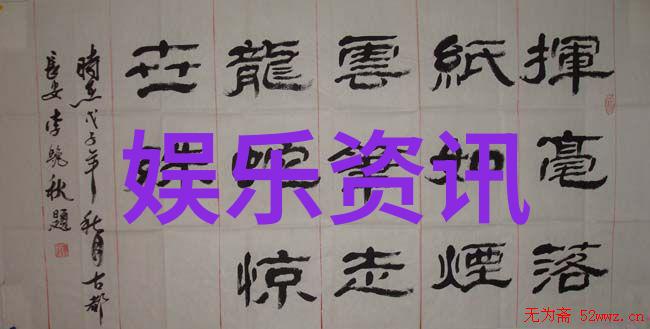 揮毫落
紙如煙
雲筆走
龍蛇惊
世殊
時在戊子年秋月古都
長安李秋題
娱乐资讯
无为斋 52wwz.cn